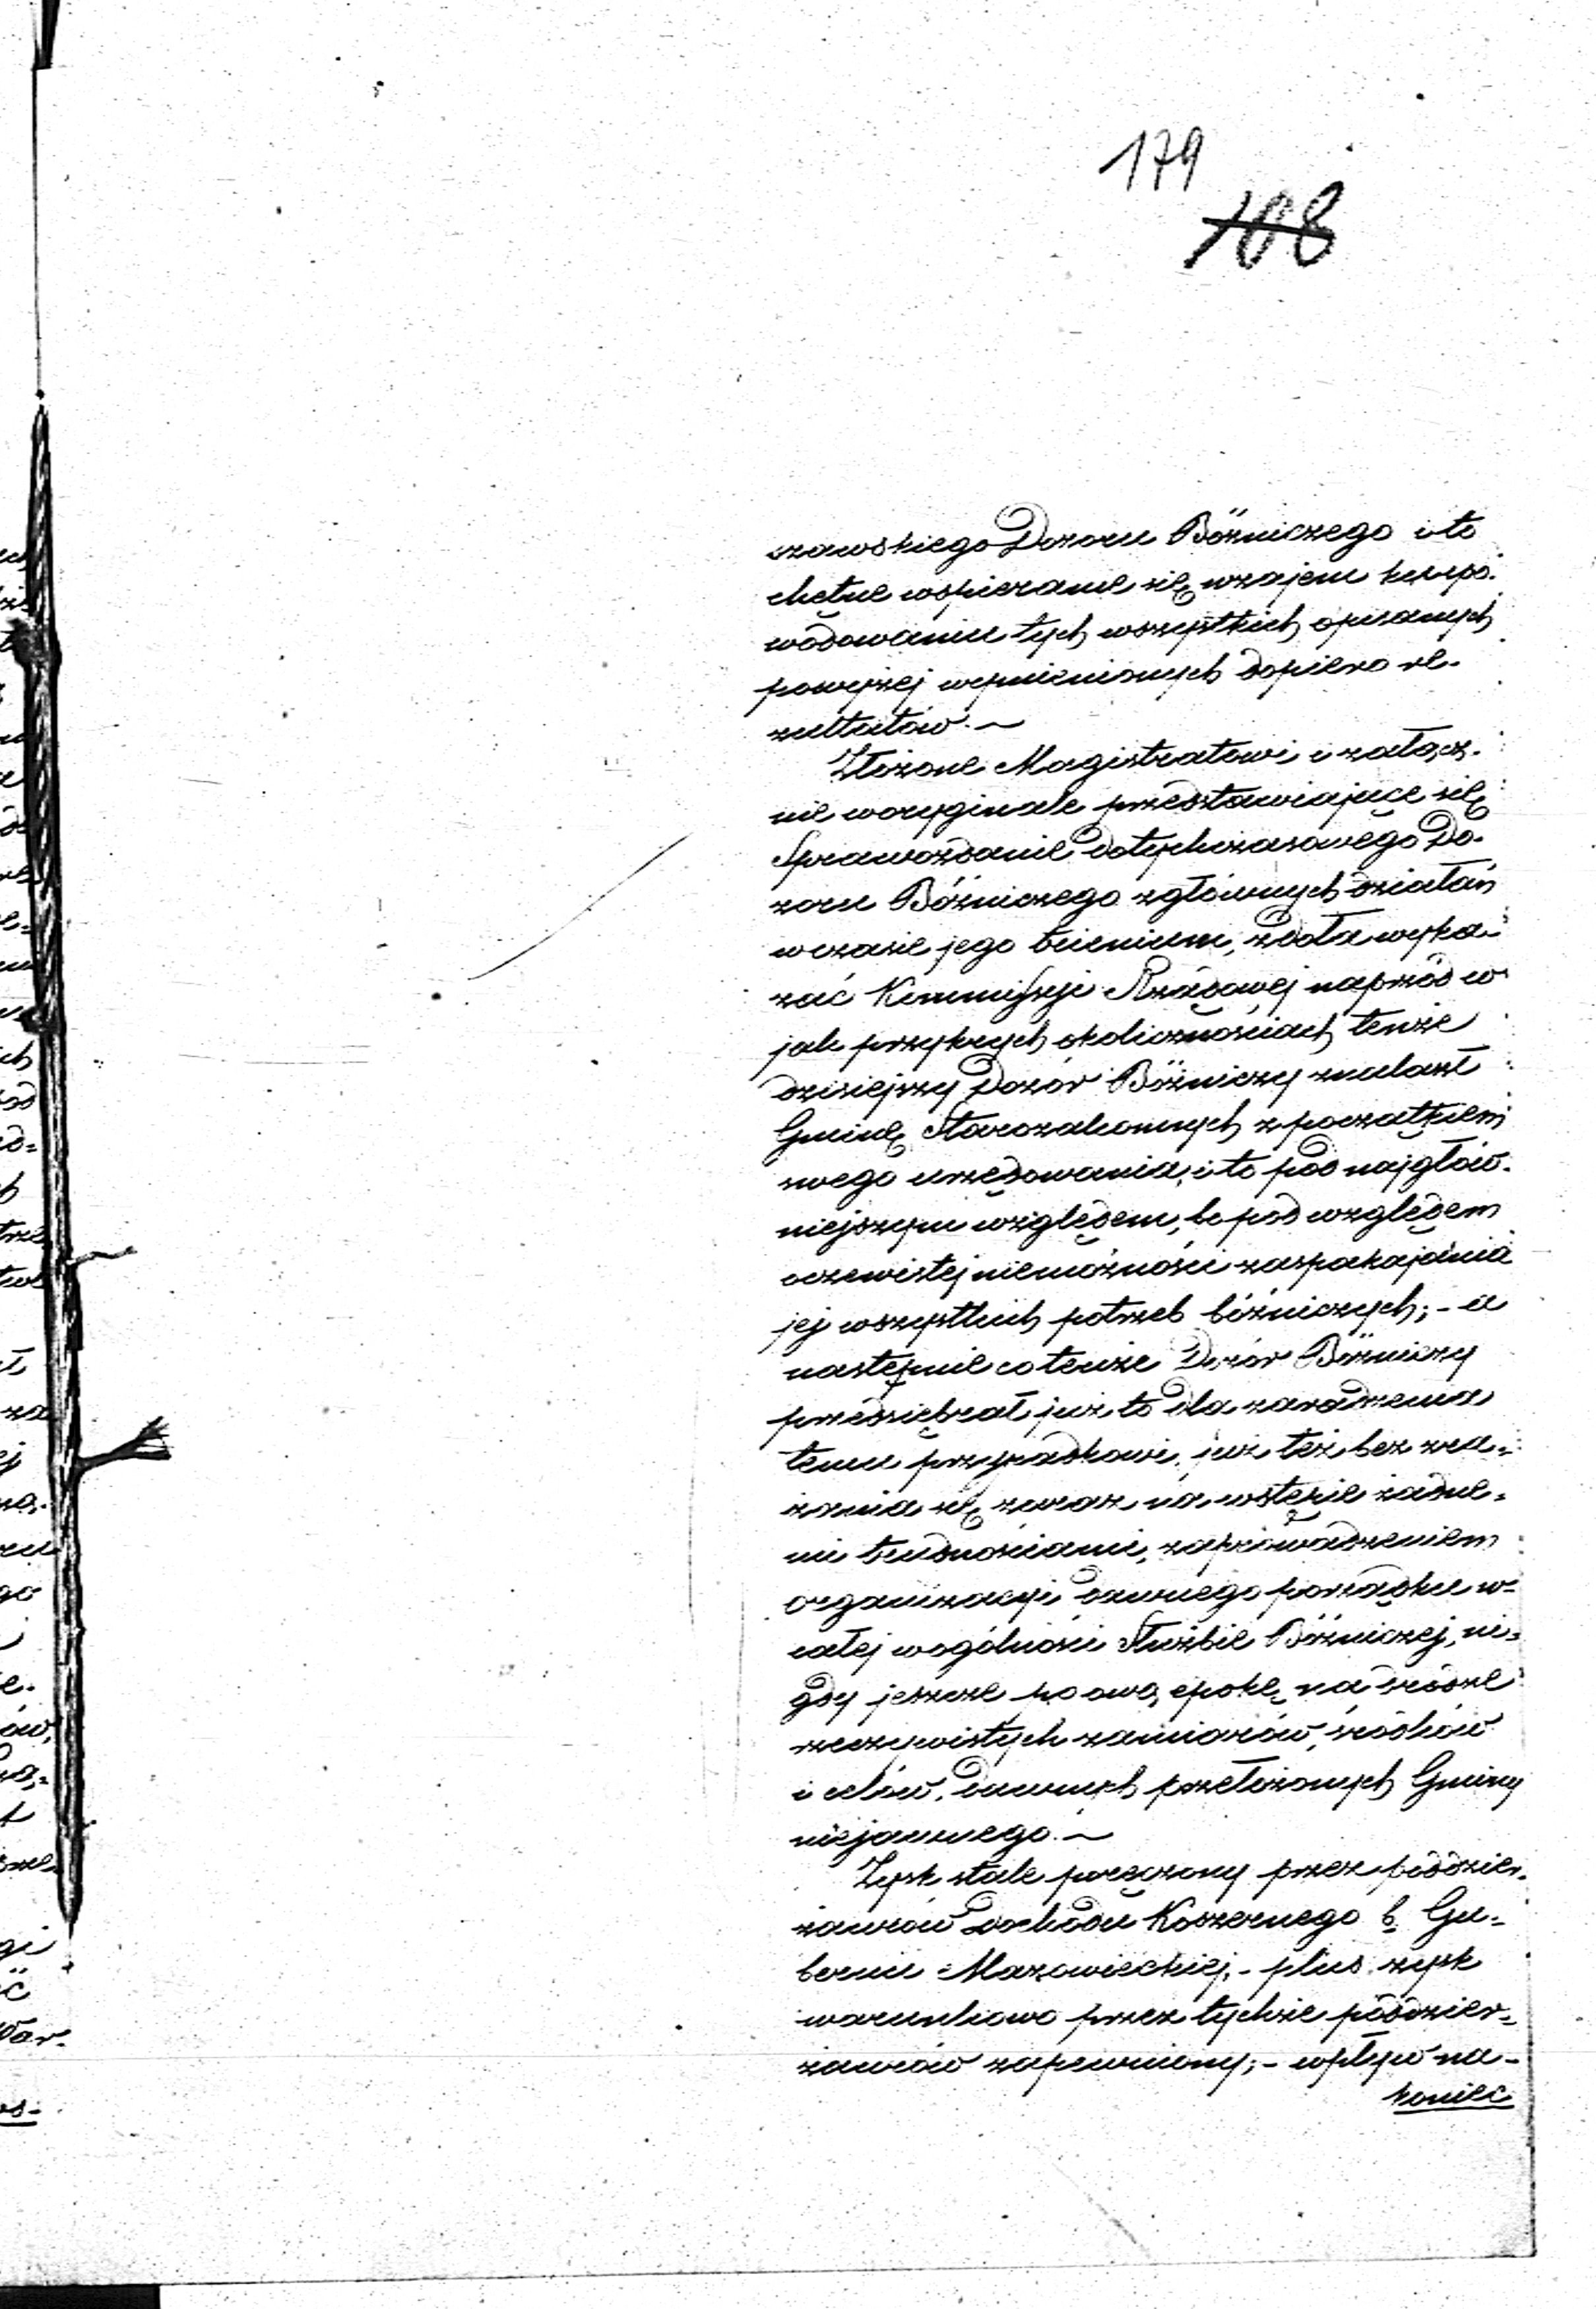 179
108
szawskiego Dozoru Bóżniczego i to
chętne wspieranie się wzajem ku spo-
wodowaniu tych wszystkich opisanych
powyżej wymienionych dopiero re-
zultatów.~
Złożone Magistratowi i załącz-
nie w oryginale przedstawiające się
Sprawozdanie dotychczasowego Do-
zoru Bóżniczego z głównych działań
w czasie jego trienium, zdoła wyka-
zać Kommissyi Rządowej naprzód w
jak przykrych okolicznościach tenże
dzisiejszy Dozór Bóżniczy znalazł
Gminę Starozakonnych z początkiem
swego urzędowania, i to pod najgłów-
niejszym względem, bo pod względem
oczewistej niemożności zaspakajania
jej wszystkich potrzeb bóżniczych; - a
następnie co tenże Dozór Bóżniczy
przedsiębrał już to dla zaradzenia
temu przypadkowi, już też bez zra-
żania się zaraz na wstępie żadne-
mi trudnościami, zaprowadzeniem
organizacyi dawnego porządku w
całej wogólności Służbie Bóżniczej, ni-
gdy jeszcze po ową epokę na drodze
rzeczywistych zamiarów, środków
i celów, dawnych przełożonych Gminy
niejawnego.~
Zysk stale poręczony przez poddzier-
żawców Dochodu Koszernego b. Gu-
bernii Mazowieckiej, - plus zysk
warunkowo przez tychże poddzier-
żawców zapewniony; - wpływ na-
koniec